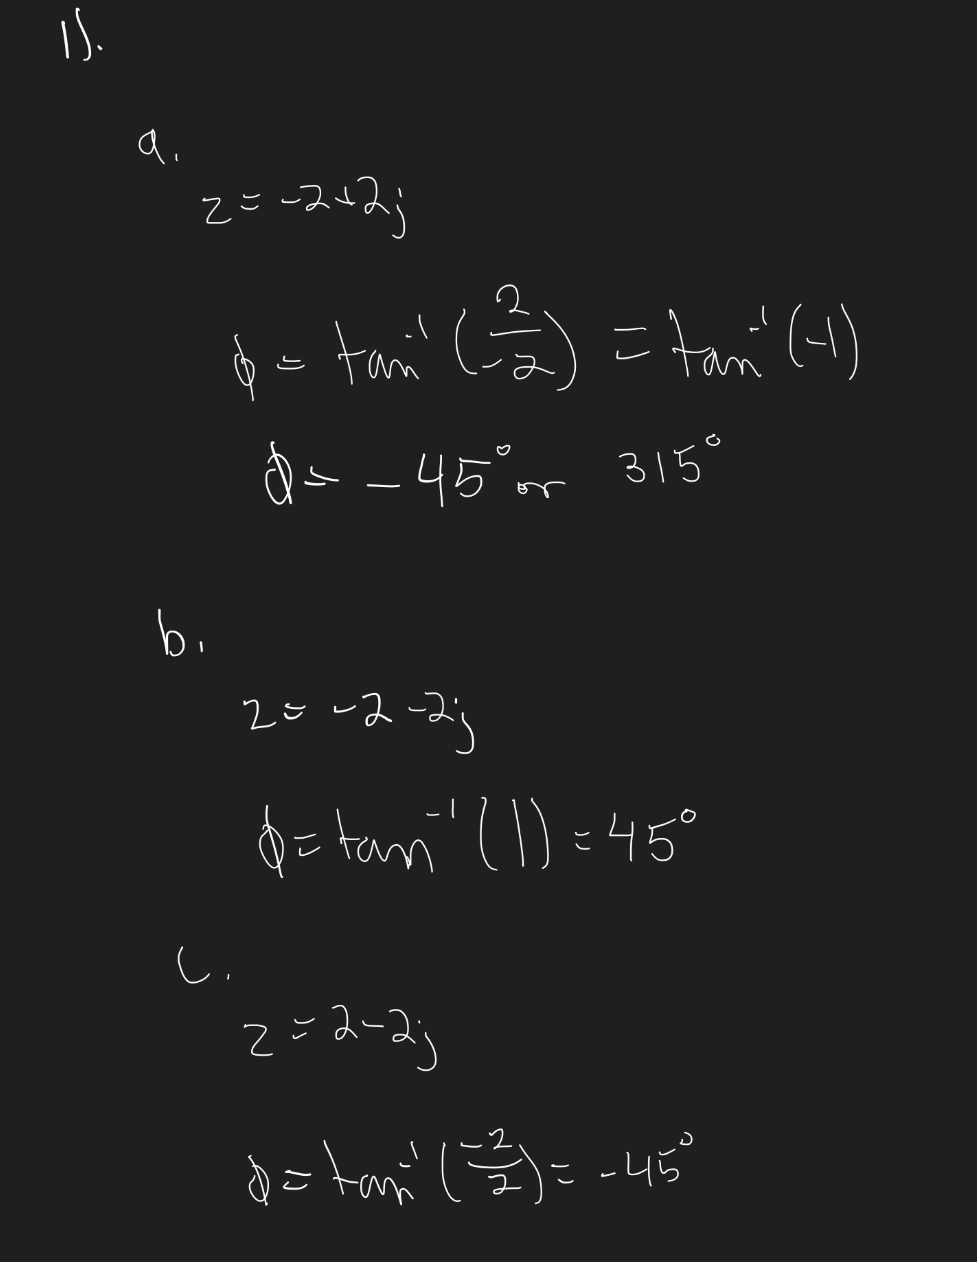 1).
a.
z = -2+2j
ϕ = tan⁻¹(2/-2) = tan⁻¹(-1)
ϕ = -45° or 315°
b.
z = -2 -2j
ϕ = tan⁻¹(1) = 45°
c.
z = 2-2j
ϕ = tan⁻¹(-2/2) = -45°